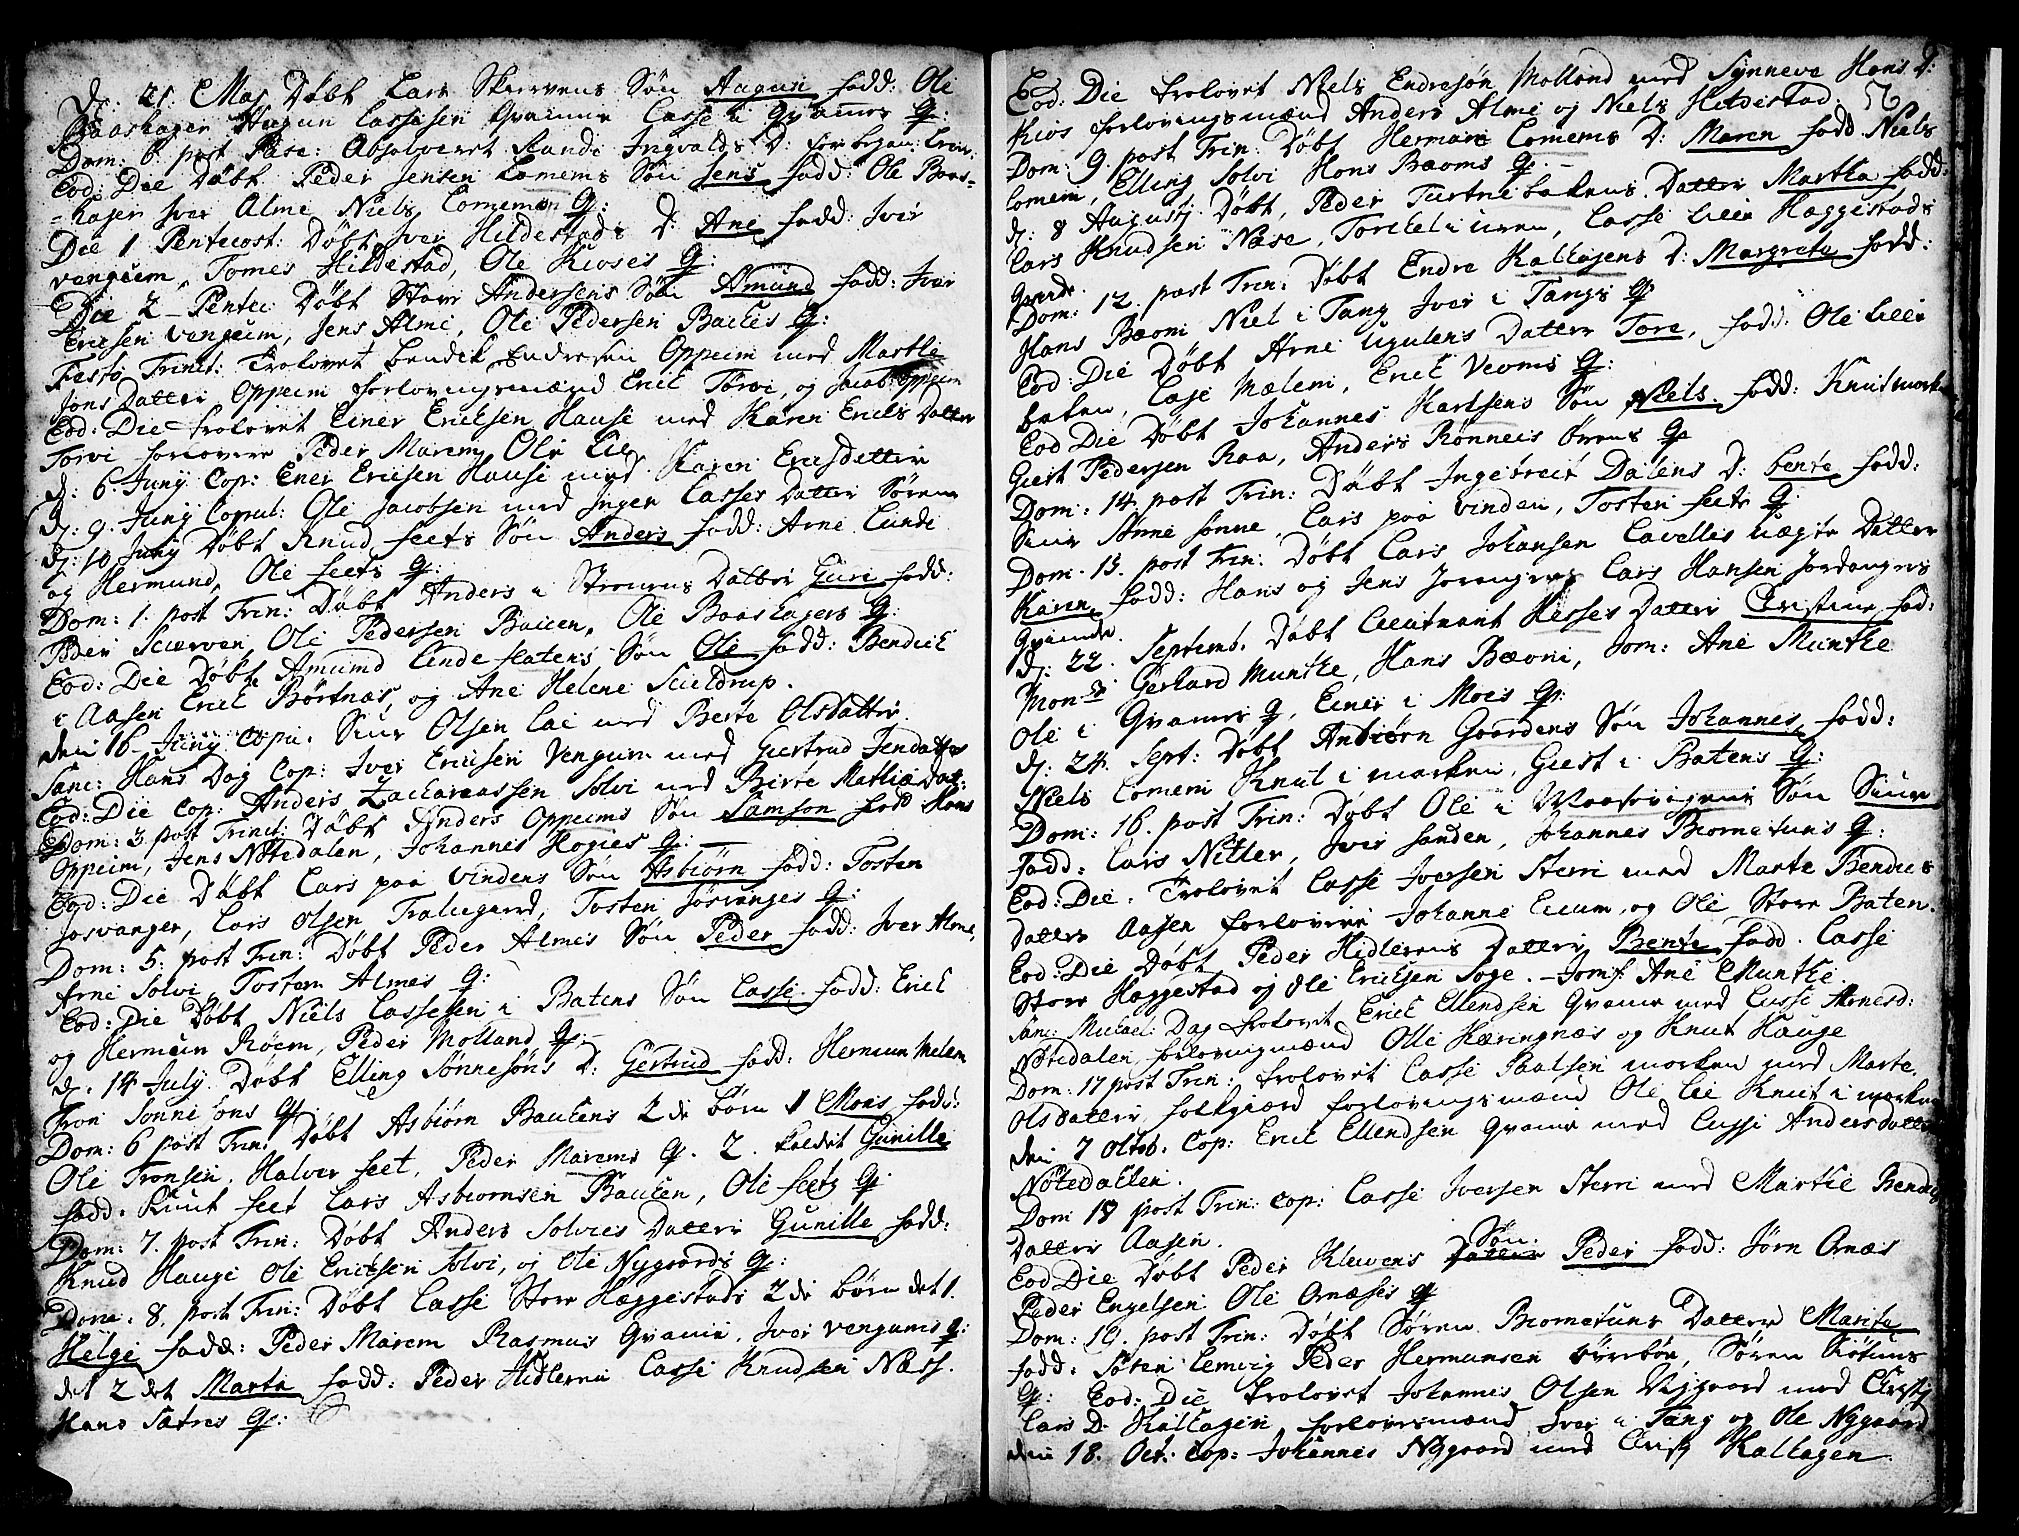 d: 21. Maj Døbt Lars Skiervens Søn Augun fadd: Ole
Baashagen Augun Lassesen Gvamme Lasse i Gvammes Q:
Dom: 6. post Pasc: Absolveret Rande Ingvalds D: for began:
Eod: Die Døbt Peder Jensen Lomems Søn Jens fadd: Ole Baas-
-hagen Iver Alme Niels Lomemen Q:
Die 1 Pentecost: Døbt Iver Hildestads D: Ane fadd: Iver
vengium, Tomes Hildestad, Ole Kioses Q:
Die 2 Pentec: Døbt Storr Andersens Søn Amund fadd: Iver
Ericsen vengeim, Jens Alme, Ole Pedersen Backes Q:
Festo Trinit: Trolovet Bendik Endresen Oppeim med Marthe
Jons Datter Oppeim forlovingsmænd Erick Torvi, og Jacob Oppeim
Eod: Die trolovet Einer Ericksen Hause med Karen Ericks Datter
Torvi forlovere Peder Marem, Ole Lie
d: 6. Junij Cop: Ener Ericsen Hause med Karen Ericsdatter
d: 9. Junij Copul: Ole Jacobsen med Ingen Lasses Datter Sørem
d: 10 Junij Døbt Knud feets Søn Anders fadd: Arne Lunde
og Hermund, Ole feets Q:
Dom: 1. post Trin: Døbt Anders i Strouens Datter Guri fadd:
Peder Scierven, Ole Pedersen Baccen, Ole Baashagers Q:
Eod: Die Døbt Amund Lindeflatens Søn Ole fadd: Bendick
i Aasen Erick Børtnæs, og Ane Helene Scieldrup.
den 16 Junij Copu. Siur Olsen Lae med Berte Olsdatter
Sanc: Hans Dag Cop: Iver Ericsen Vengum med Giertrud Jendatter
Eod: Die Cop: Anders Zachariassen Solvi med Birte Mathiæ Dat:
Dom: 3 post Trinit: Døbt Anders Oppeims Søn Samson fadd Hans
Oppeim, Jens Nøtedalen, Johannes Hogies Q:
Eod: Die Døbt Lars paa vindens Søn Asbiørn fadd: Tosten
Josvanger, Lars Olsen Tralegaard, Tosten Josvanges Q:
Dom: 5. post Trin: Døbt Peder Almes Søn Peder fadd: Iver Alme,
Arne Solvi Tosten Almes Q:
Eod: Die Døbt Niels Lassesen i Batens Søn Lasse. fadd: Erick
og Hermein Røem, Peder Molland Q:
d. 14 July Døbt Elling Sønnesøns D: Gertrud fadd: Hermun Melem
Tron Sonnesons Q:
Dom: 6 post Trin: Døbt Asbiørn Backens 2 de børn 1 Mons fadd:
Ole Tronsen, Halver feet, Peder Marems Q. 2. kaldet Gunille
fadd. Knut feet Lars Asbiornsen Backen, Ole feets Q
Dom: 7. post Trin: Døbt Anders Solvies Datter Gunille fadd:
Knud Hauge Ole Ericksen Solvi, og Ole Nygaards Q:
Dom: 8. post Trin: Døbt Lasse Store Hæggestads 2 de børn det 1.
Helge fadd: Peder Marem Rasmus Gvame, Iver vengums Q:
det 2 det Marta fadd: Peder Hidleren Lasse Knudsen Næss.
Hans Sætres Q:
Eod: Die trolovet Niels Endresøn Molland med Synneve Hans D:
Kios forlovingsmænd Anders Alme og Niels Hildestad. 56
Dom: 9. post Trin. Døbt Herman Lomems D: Maren fadd. Niels
Lomem, Elling Solvi Hans Bæoms Q:
d: 8 Augustj Døbt, Peder Turtnebakens Datter Martha fadd:
Lars Knudsen Næse, Torckel i uren, Lasse Leer Haggestads
Qvinde.
Dom: 12. post Trin: Døbt Endre Kalhagens D: Margreta fadd:
Hans Bæom Niel i Tang Iver i Tangs Q:
Eod: Die Døbt Arne ugulens Datter Tore, fadd: Ole Leer
baken, Lasse Mælem, Erick Veoms Q:
Eod Die Døbt Johannes Karlsens Søn Niels. fadd: Knud morken
Giest Pedersen Raa, Anders Rønneis ørens Q.
Dom: 14. post Trin: Døbt Ingebreit Dalens D: bente fadd:
Siur Sønnesonne, Lars paa vinden, Tosten feets Q:
Dom. 15. post Trin: Døbt Lars Johansen Lavelles uægte Datter
Karen fadd: Hans og Jens Jorangers Lars Hansen Jordangers
Qvinde.
d: 22. Septemb. Døbt Lieutnant Hesses Datter Christine fad:
Monsr Gerhard Munthe, Hans Bæom, Jom: Ane Munthe
Ole i Gvames Q, Einer i Moes Q:
d: 24. Sept: Døbt Anbiørn Gaardens Søn Johannes fadd:
Niels Lomem Knut i morken, Giest i Batens Q:
Dom: 16. post Trin: Døbt Ole i Søn Siur
fadd: Lars Nitter, Iver sanden, Johannes Biornetuns Q:
Eod: Die. Trolovet Lasse Iversen Sterri med Marte Bendics
Datter Aasen forlovere Johanne Eeum, og Ole Store Baten.
Eod: Die Døbt Peder Hidlerens Datter Bente fadd. Lasse
Store Haggestad og Ole Ericksen Soge. Jomf: Ane Munthe.
San: Michael: Dag trolovet Erick Ellendsen Gvame med Lussi Andersd:
Nøtedalen forlovingmænd Olle Kæringnæs og Knut Hauge
Dom: 17 post Trin: trolovet Lasse Paalsen morken med Marte.
Olsdatter folkgiærd forlovingsmænd Ole Lie Knut i morken
den 7 Oktob. Cop: Erick Ellendsen Gvame med Lussi Andersdatter
Nøtedallen.
Dom 18 post Trin: Cop: Lasse Iversen Sterri med Marthe Bendics
Datter Aasen.
Eod Die Døbt Peder Klevens Datter Søn. Peder fadd: Jørn Ornæs
Peder Engelsen Ole Ornæses Q
Dom: 19. post Trin: Døbt Søren Biornetuns Datter Marita
fadd: Søren Lemvig Peder Hermansen øvrebøe, Søren Kiøtuns
Q: Eod: Die trolovet Johannes Olsen Nygaard med Christj
Lars D: Kalhagen forlovrsmænd Iver i Tang og Ole Nygaard
den 18. Oct. Cop: Johannes Nygaard med Christj Kalhagen